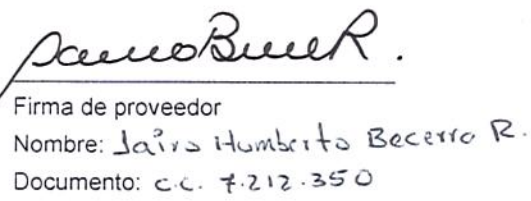 Firma de proveedor
Nombre: Jairo Humberto Becerra R.
Documento: c.c. 7.212.350